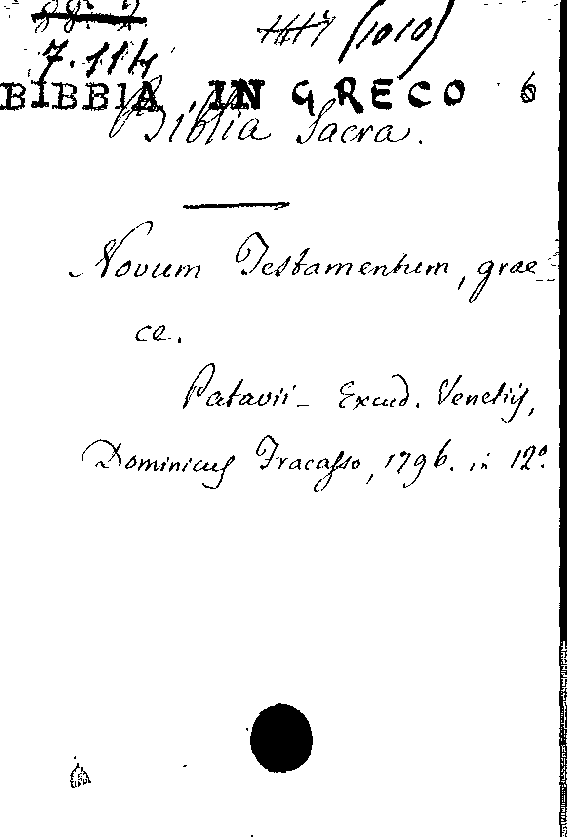 7.114 (1010)
BIBBIA IN GRECO 6
Biblia Sacra.
Novum Testamentum, grae
ce.
Patavii - Excud. Venetiis,
Dominicus Fracasso, 1796. in 12º.